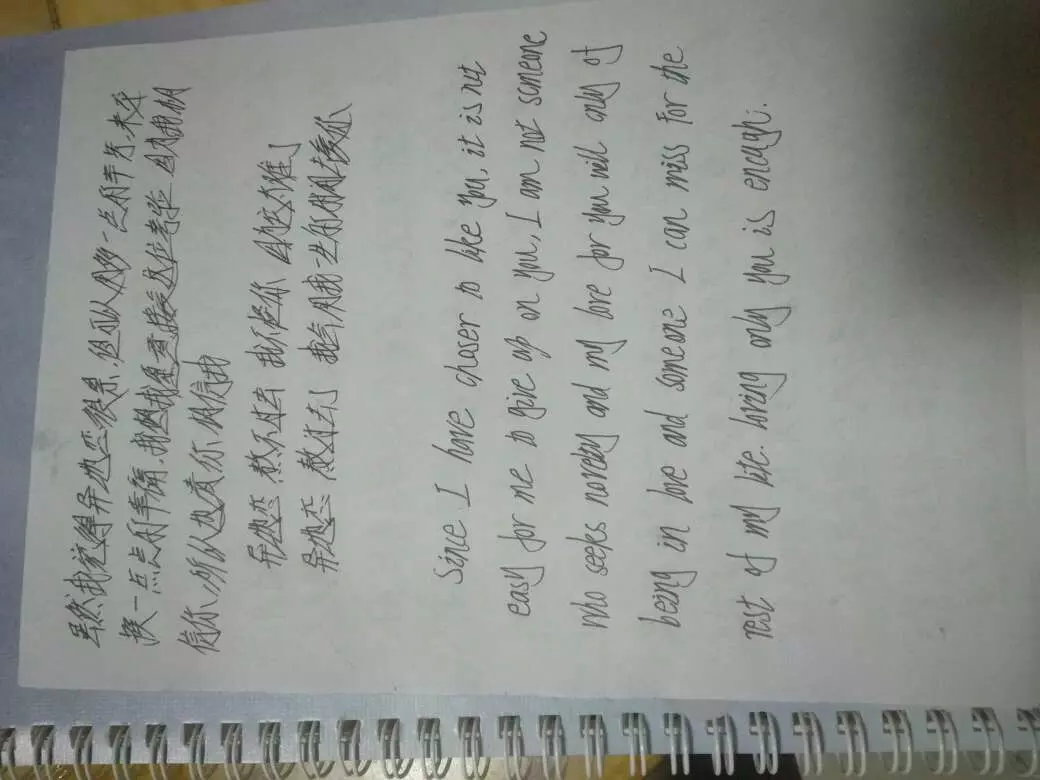 虽然我觉得异地恋很累,但可以用多一点的辛苦,来交
换一点点的幸福.我想我愿意接受这 考验 因为我相
信你,所以也 你相信我
异地恋 熬不过去 我不怪你 因为这太难了
异地恋 熬过去了 我会用我一生的时间 你
Since I have chosen to like you, it is not
easy for me to give up on you, I am not someone
who seeks novelty and my love for you will only of
being in love and someone I can miss for the
rest of my life. loving only you is enough.